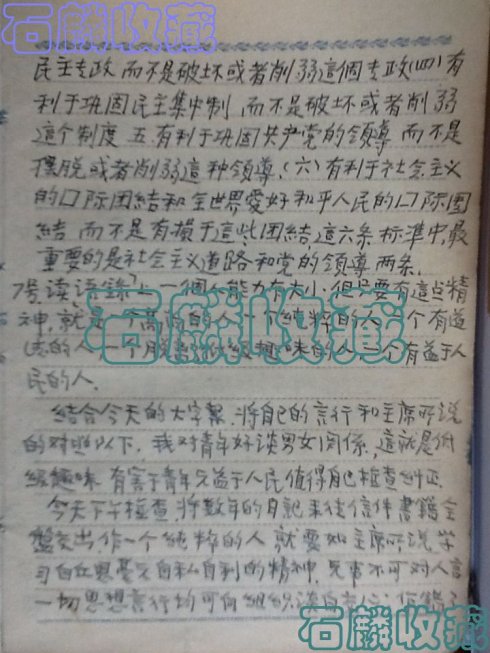 石麟收藏
民主专政 而不是破坏或者削弱這個专政(四)有
利于巩固民主集中制 而不是破坏或者削弱
這个制度 五.有利于巩固共产党的领導 而不是
摆脱或者削弱這种领導.(六)有利于社会主义
的口际团結和全世界爱好和平人民的口际团
結 而不是有損于這些团結這六条标準中,最
重要的是社会主义道路和党的领導两条.
7号读语錄 上一個人能力有大小,但只要有這点精
神,就是一个高尚的人 一个纯粹的人 一个有道
德的人 一个脱离低级趣味的人 一个有益于人
民的人.
石麟收藏
結合今天的大字報,將自己的言行和主席所说
的对照以下,我对青年好谈男女関係,這就是低
级趣味 有害于青年 益于人民值得自己检查纠正.
今天下午检查,将数年的日記 来往信件書籍全
盤交出,作一个纯粹的人 就要如主席所说,学
习白求恩毫无自私自利的精神,不可对人言
一切思想言行均可向组织
石麟收藏